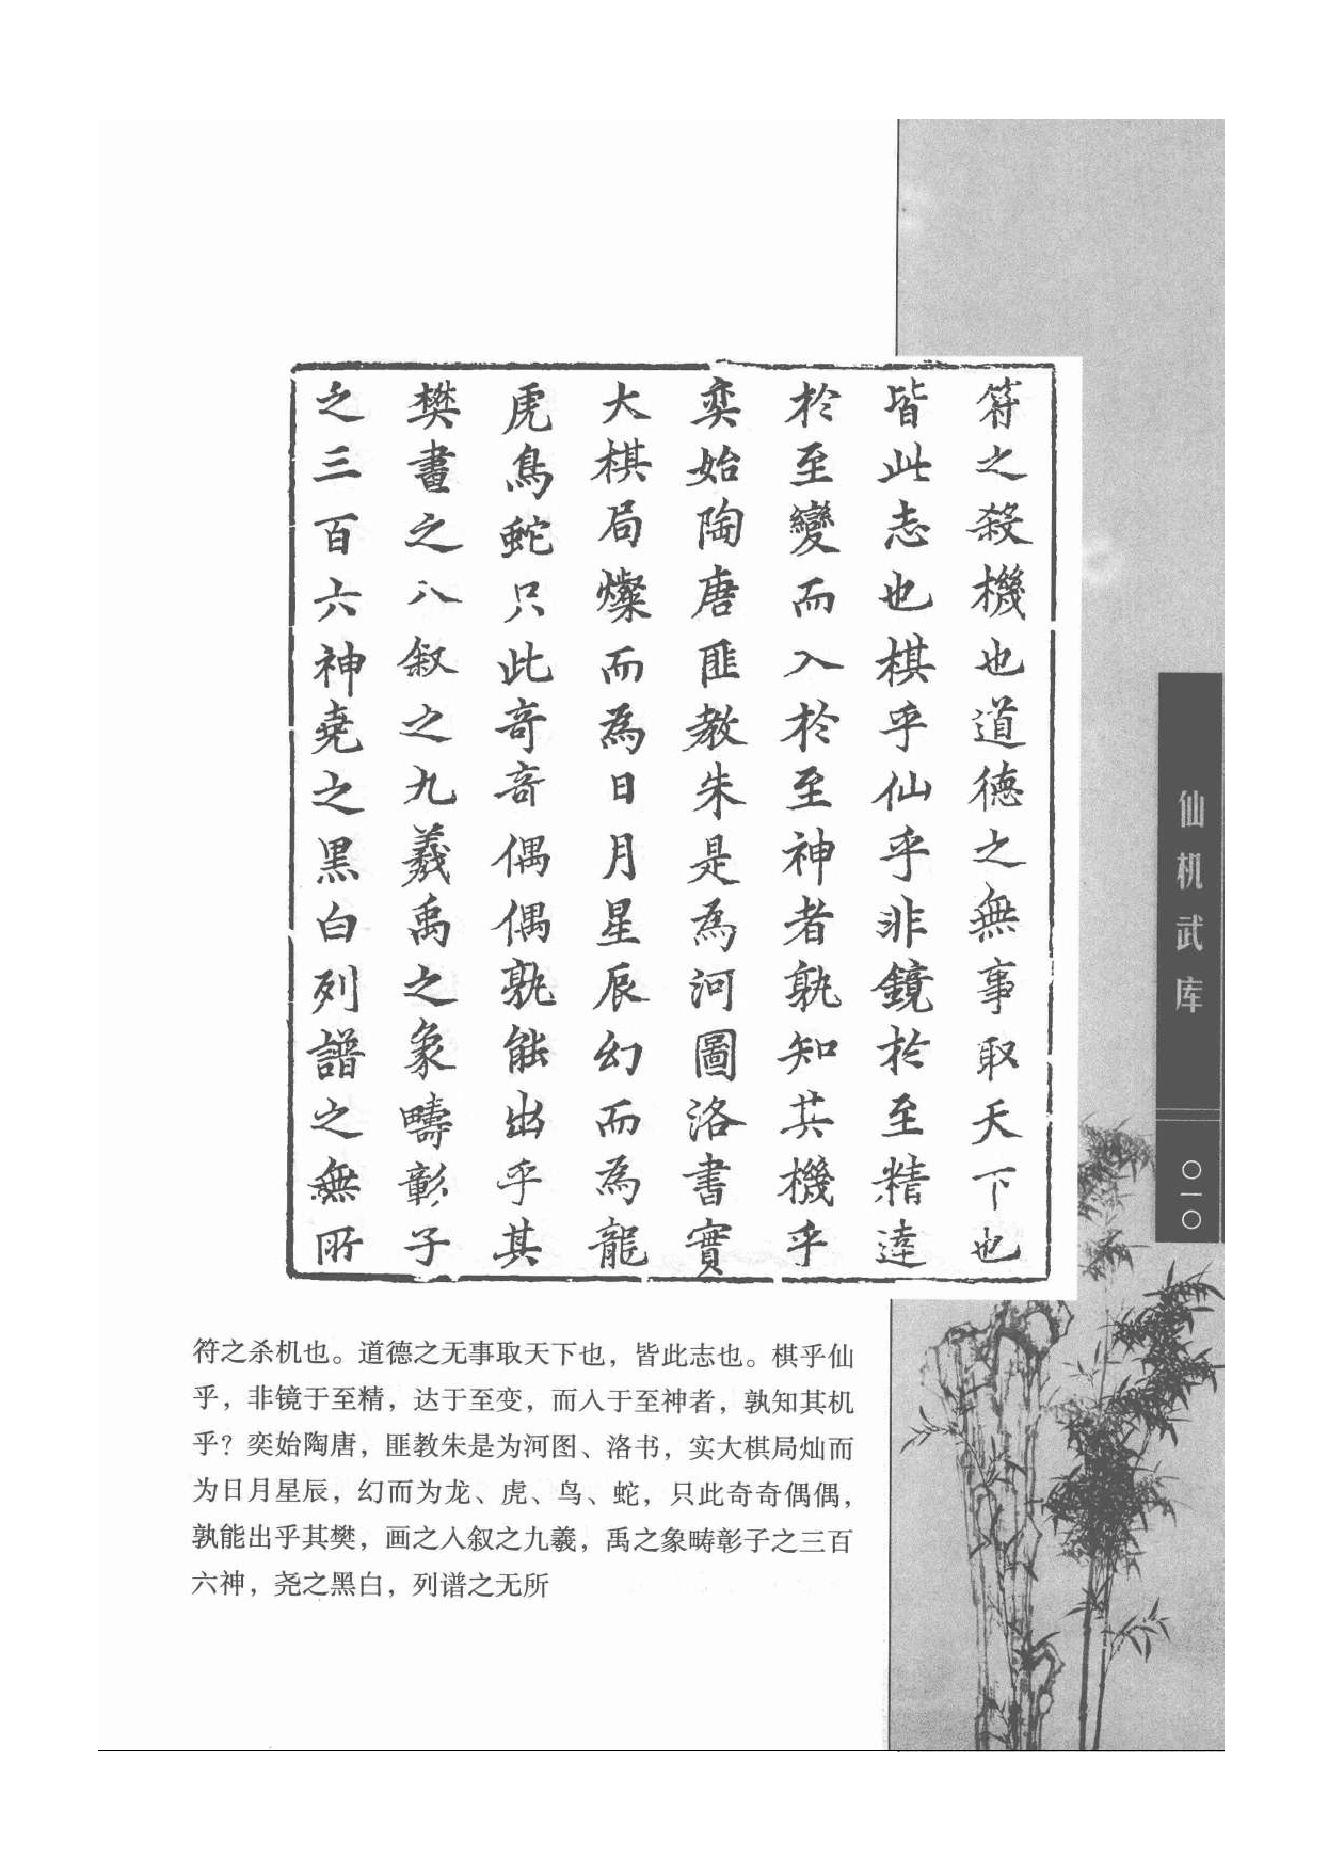 符之殺機也道德之無事取天下也
皆此志也棋乎仙乎非鏡於至精達
於至變而入於至神者孰知其機乎
奕始陶唐匪教朱是為河圖洛書實
大棋局燦而為日月星辰幻而為龍
虎鳥蛇只此奇奇偶偶孰能出乎其
樊畫之八叙之九羲禹之象疇彰子
之三百六神堯之黑白列譜之無所
仙机武库
〇一〇
符之杀机也。道德之无事取天下也，皆此志也。棋乎仙
乎，非镜于至精，达于至变，而入于至神者，孰知其机
乎？奕始陶唐，匪教朱是为河图、洛书，实大棋局灿而
为日月星辰，幻而为龙、虎、鸟、蛇，只此奇奇偶偶，
孰能出乎其樊，画之入叙之九羲，禹之象畴彰子之三百
六神，尧之黑白，列谱之无所